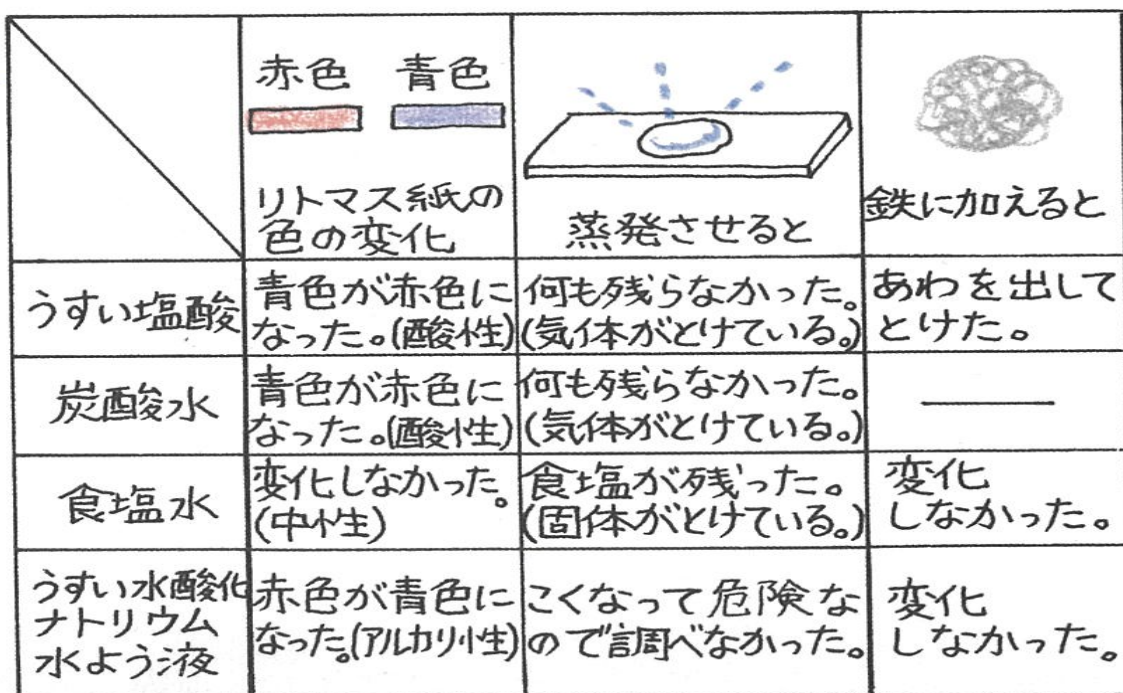 赤色 青色
リトマス紙の
色の変化
蒸発させると
鉄に加えると
うすい塩酸
青色が赤色に
なった。(酸性)
何も残らなかった。
(気体がとけている。)
あわを出して
とけた。
炭酸水
青色が赤色に
なった。(酸性)
何も残らなかった。
(気体がとけている。)
食塩水
変化しなかった。
(中性)
食塩が残った。
(固体がとけている。)
変化
しなかった。
うすい水酸化
ナトリウム
水よう液
赤色が青色に
なった。(アルカリ性)
こくなって危険な
ので調べなかった。
変化
しなかった。